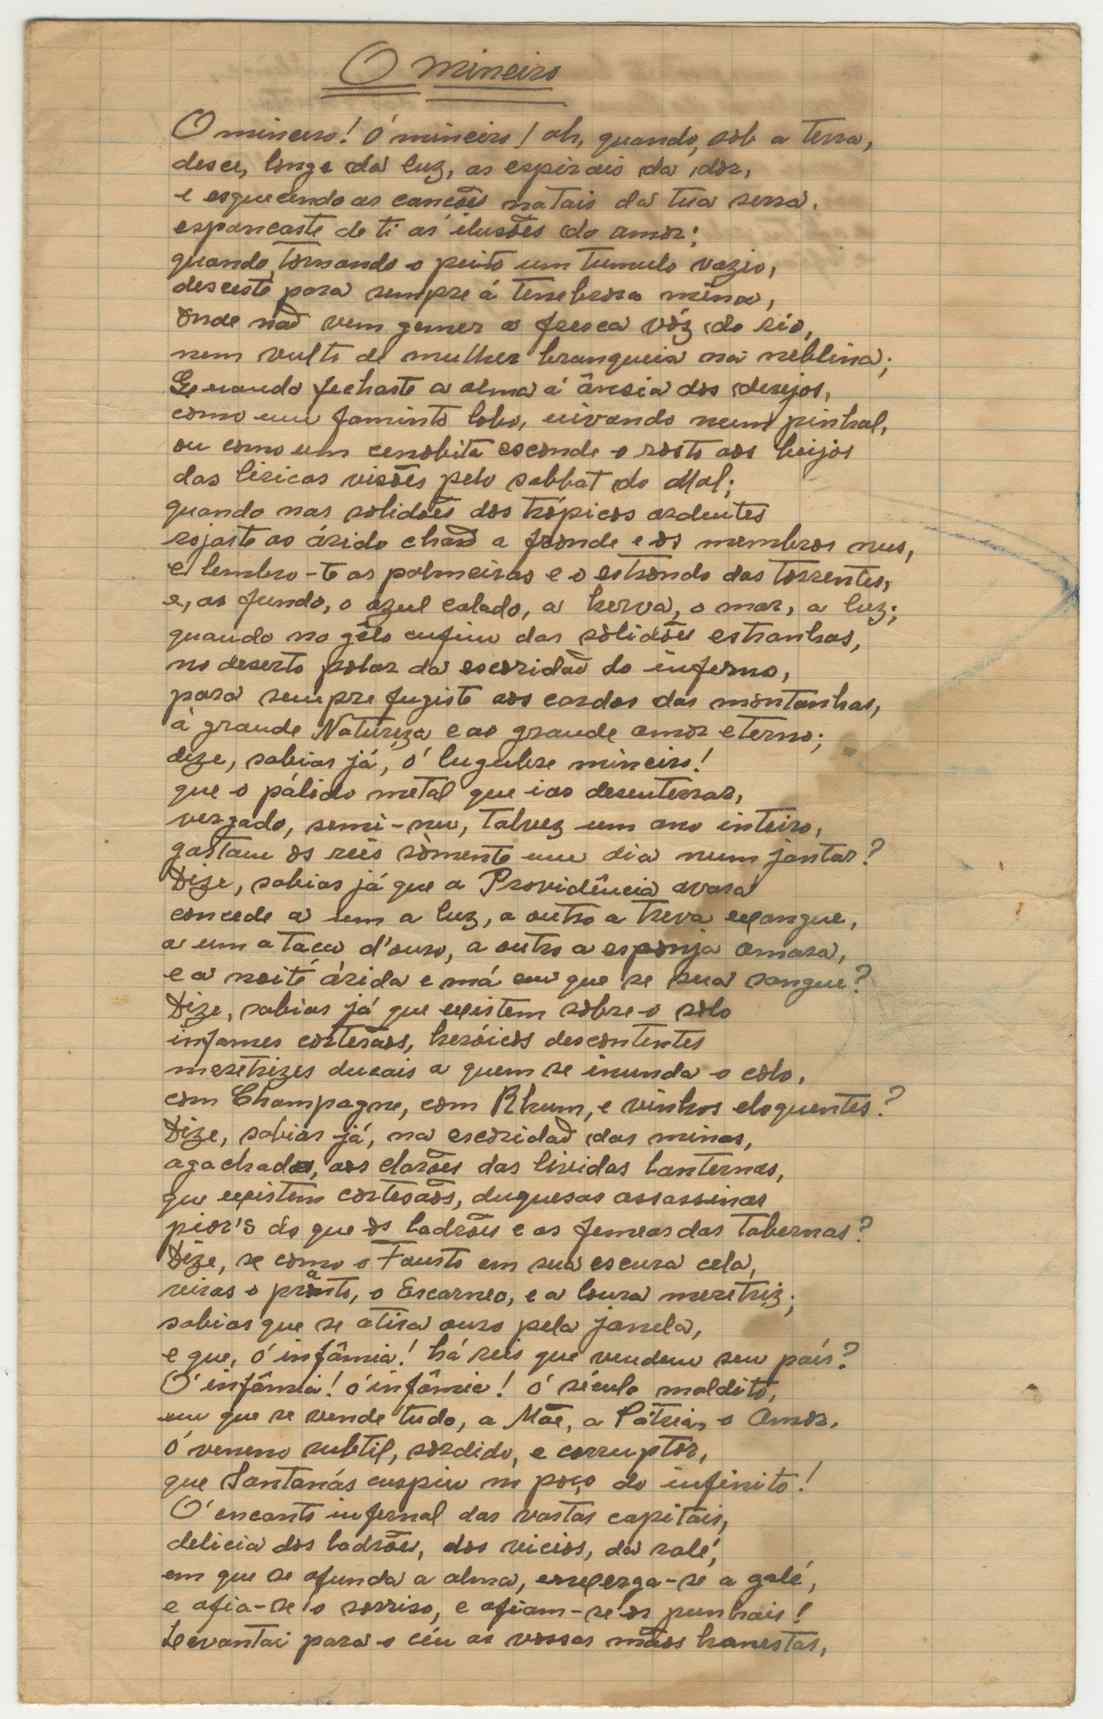 O mineiro
O mineiro! ó mineiro! oh, quando, sob a terra,
desce, longe da luz, as espirais da dor,
e esquecendo as canções natais da tua serra,
espancaste de ti as ilusões do amor;
quando, tornando o peito um tumulo vazio,
desceste para sempre á tenebrosa mina,
onde não vem gemer a fresca vóz do rio,
nem vulto de mulher branqueia na neblina;
Quando fechaste a alma á ância dos desejos,
como um faminto lobo, uivando num pinhal,
ou como um cenobita esconde o rosto aos beijos
das liricas visões pelo sabbat do Mal;
quando nas solidões dos trópicos ardentes
rojaste ao árido chão a fronde e os membros nus,
e lembro-te as palmeiras e o estrondo das torrentes,
e, ao fundo, o azul calado, a herva, o mar, a luz;
quando no gêlo enfim das solidões estranhas,
no deserto polar da escoridão do inferno,
para sempre fugiste aos cardos das montanhas,
á grande Natureza e ao grande amor eterno;
dize, sabias já, ó lugubre mineiro!
que o pálido metal que ias desenterrar,
vergado, semi-nu, talvez um ano inteiro,
gastam os reis sòmente um dia num jantar?
Dize, sabias já que a Providência avara
concede a um a luz, a outro a treva exangue,
a um a taça d'ouro, a outro a esponja amara,
e a noite árida e má em que se sua sangue?
Dize, sabias já que existem sobre o solo
infames cortesãos, heróicos descontentes
meretrizes ducais a quem se inunda o colo,
com Champagne, com Rhum, e vinhos eloquentes?
Dize, sabias já, na escoridão das minas,
agachados, aos clarões das lividas lanternas,
que existem cortesãos, duquesas assassinas
pior's do que os ladrões e as femeas das tabernas?
Dize, se como o Fausto em sua escura cela,
viras o pranto, o Escarneo, e a loura meretriz;
sabias que se atira ouro pela janela,
e que, ó infâmia! há reis que vendem seu país?
O' infâmia! ó infâmia! ó século maldito,
em que se vende tudo, a Mãe, a Pátria, o Amor.
ó veneno subtil, sordido, e corruptor,
que Santanás cuspiu no poço do infinito!
O' encanto infernal das vastas capitais,
delicia dos ladrões, dos vicios, da ralé,
em que se afunda a alma, enxerga-se a galé,
e afia-se o sorriso, e afiam-se os punhais!
Levantai para o céu as vossas mãos honestas,